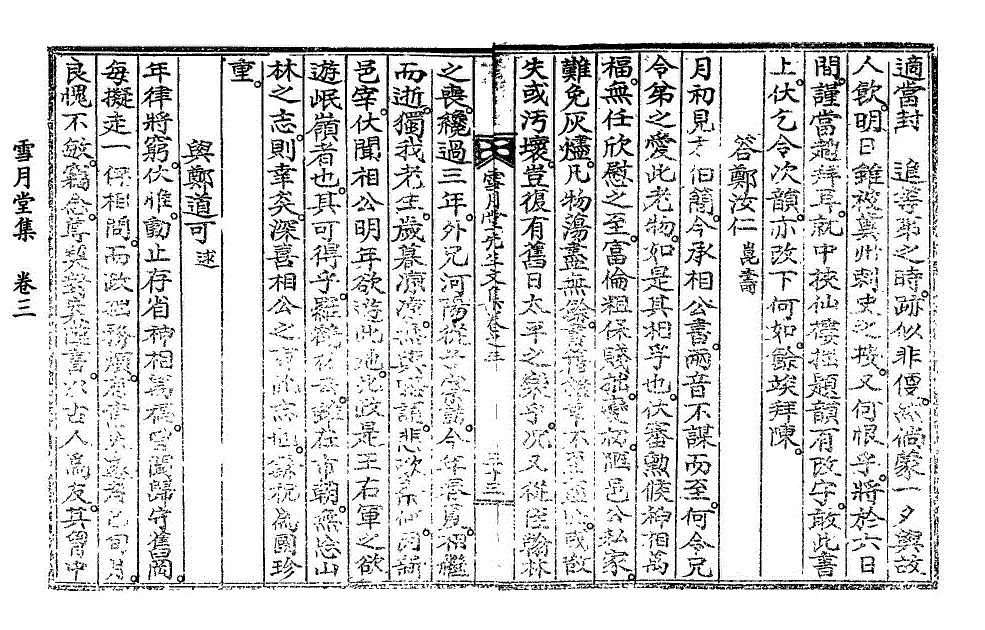 適當封　進等弟之時跡似非便然倘蒙一夕與故
人飮明日雖被襄州刺史之擯又何恨乎將於六日
間謹當趨拜耳就中挾仙樓拙題韻有改字敢此書
上伏乞令次韻亦改下何如餘竢拜陳
答鄭汝仁崑壽
月初見伯簡今承相公書兩音不謀而至何令兄
令弟之愛此老物如是其相孚也伏審勲候神相萬
福無任欣慰之至富倫粗保賤拙變故陋邑公私家
難免灰燼凡物蕩盡無餘書籍或散
失或汚壞豈復有舊日太平之樂乎況又從侄翰林
雪月堂先生文集卷之三　三十三
之喪纔過三年外兄河陽今年春舅相繼
而逝獨我老生歲暮凉凉無與晤語悲次承新
邑宰伏聞相公明年欲遊此地此政是王右軍之欲
遊岷嶺者也其可得乎雖在市朝無忘山
林之志則幸矣深喜相公之有此志也祝爲國珍
重
與鄭道可逑
年律將窮伏惟動止存省神相萬福曾聞歸守舊岡
每擬走一伻相問而政
良愧不敏竊念尊契以古人爲友其曾中
雪月堂集　卷三